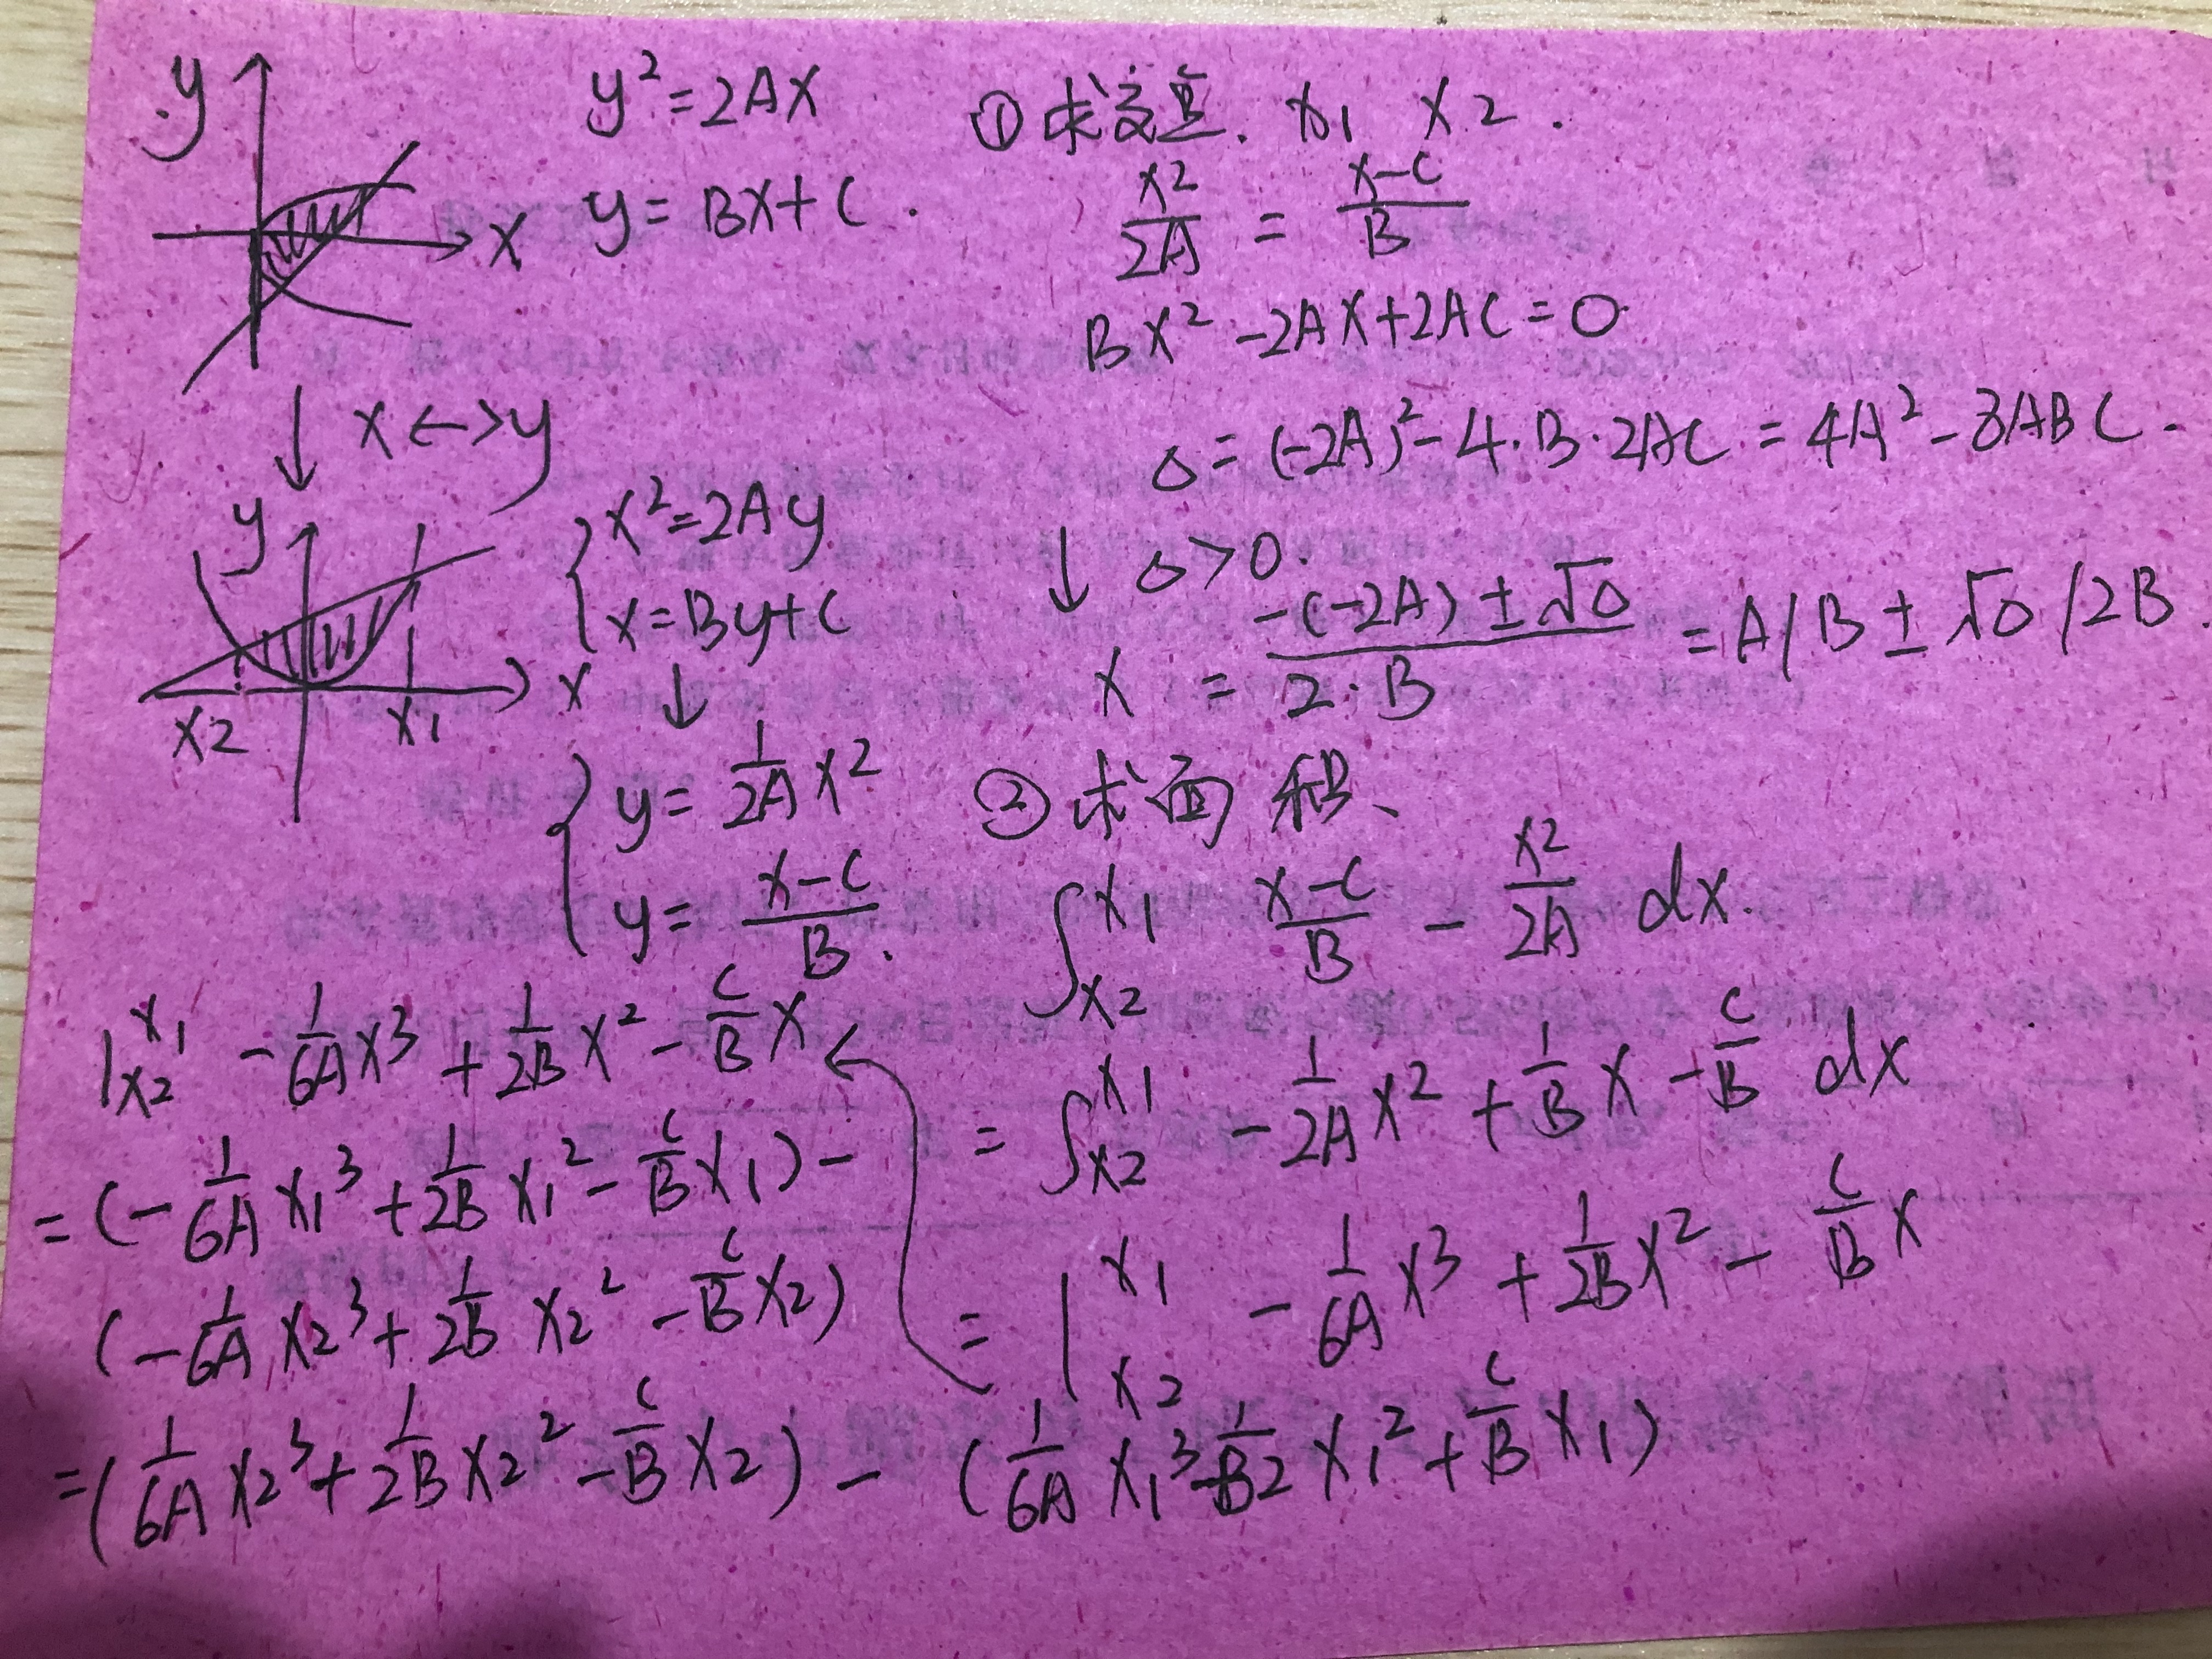 y
y² = 2AX
y = BX + C .
X
↓ X <-> y
y
{ X² = 2Ay
X = By + C
X
X2
X1
↓
{ y = 1/2A X²
y = X-C/B .
① 求交点. X1 X2 .
X2/2A = X-C/B
BX² - 2AX + 2AC = 0
△ = (-2A)² - 4·B·2AC = 4A² - 8ABC .
↓ △ > 0.
X = -(-2A) ± √△ / 2·B = A/B ± √△ /2B .
② 求面积、
∫ X1 X2 X-C/B - X2/2A dX .
= ∫ X1 X2 - 1/2A X² + 1/B X - C/B dX
= | X1 X2 - 1/6A X³ + 1/2B X² - C/B X
| X1 X2 - 1/6A X³ + 1/2B X² - C/B X ←
= (- 1/6A X1³ + 1/2B X1² - C/B X1) -
(- 1/6A X2³ + 1/2B X2² - C/B X2)
= ( 1/6A X2³ + 1/2B X2² - C/B X2 ) - ( 1/6A X1³ - 1/B2 X1² + C/B X1 )